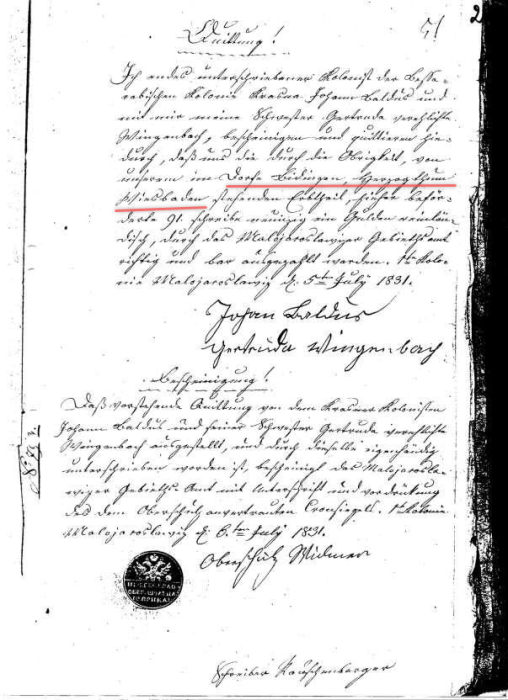 2
51
Quittung!
Ich endes unterschriebener Kolonist der Bessa-
rabischen Kolonie Krasna Johann Baldus und
mit mir meine Schwester Gertruda verehlichte
Wingenbach, bescheinigen und quittieren hie-
durch, daß uns die durch die Obrigkeit, von
unserem im Dorfe Bidingen, Herzogthum
Wiesbaden stehenden Erbtheil, hieher beför-
derte 91. schreibe neunzig ein Gulden reinlän-
disch, durch das Malojaroslawezer Gebiethsamt
richtig und bar ausgezahlt worden. Kolo-
nie Malojaroslawez d. 5ten July 1831.
Johan Baldus
Gertruda Wingenbach
Bescheinigung!
Daß vorstehende Quittung von dem Krasner Kolonisten
Johann Baldus und seiner Schwester Gertrude verehlichte
Wingenbach ausgestellt, und durch dieselbe eigenhändig
unterschrieben worden ist, bescheinigt das Malojarosla-
wezer Gebieths Amt mit Unterschrift und Vordrückung
des dem Oberschulz anvertrauten Cronsiegels. Kolonie
Malojaroslawez d. 6ten July 1831.
Oberschulz Widmer
Schreiber Rauschenberger